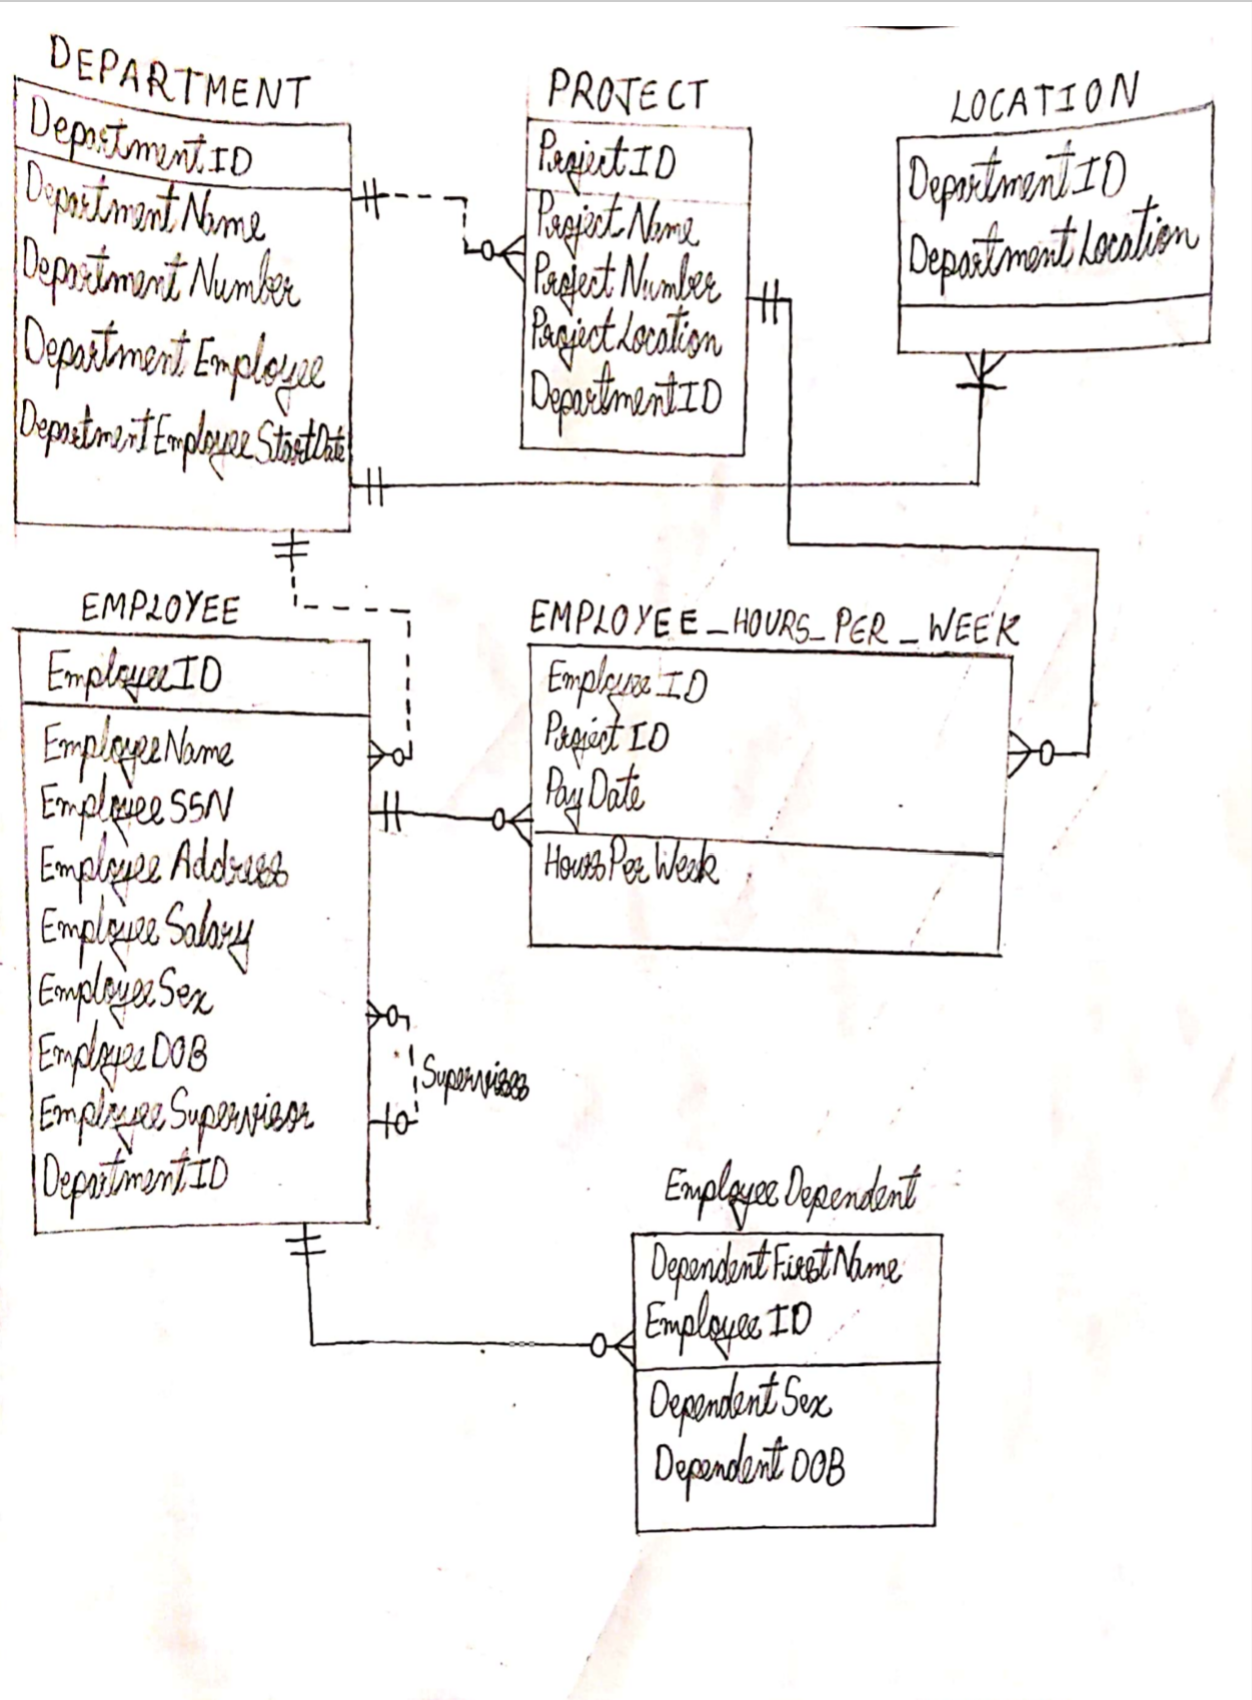 DEPARTMENT
DepartmentID
Department Name
Department Number
Department Employee
Department Employee StartDate
PROJECT
ProjectID
Project Name
Project Number
Project Location
DepartmentID
LOCATION
DepartmentID
Department Location
EMPLOYEE
EmployeeID
Employee Name
Employee SSN
Employee Address
Employee Salary
Employee Sex
Employee DOB
Employee Supervisor
DepartmentID
Supervises
EMPLOYEE_HOURS_PER_WEEK
Employee ID
Project ID
Pay Date
Hours Per Week
Employee Dependent
Dependent First Name
Employee ID
Dependent Sex
Dependent DOB